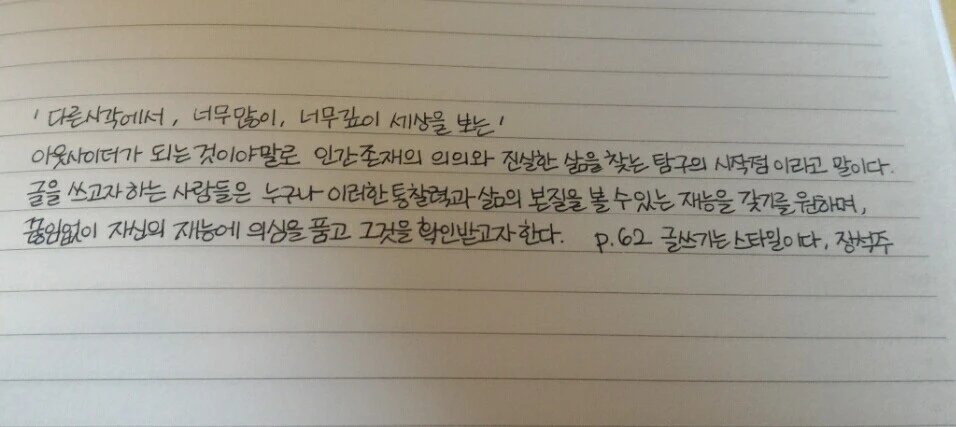 '다른시각에서, 너무많이, 너무깊이 세상을 보는'
아웃사이더가 되는 것이야말로 인간존재의 의의와 진실한 삶을 찾는 탐구의 시작점 이라고 말이다.
글을 쓰고자 하는 사람들은 누구나 이러한 통찰력과 삶의 본질을 볼 수 있는 재능을 갖기를 원하며,
끊임없이 자신의 재능에 의심을 품고 그것을 확인받고자 한다. p.62 글쓰기는 스타일이다, 장석주